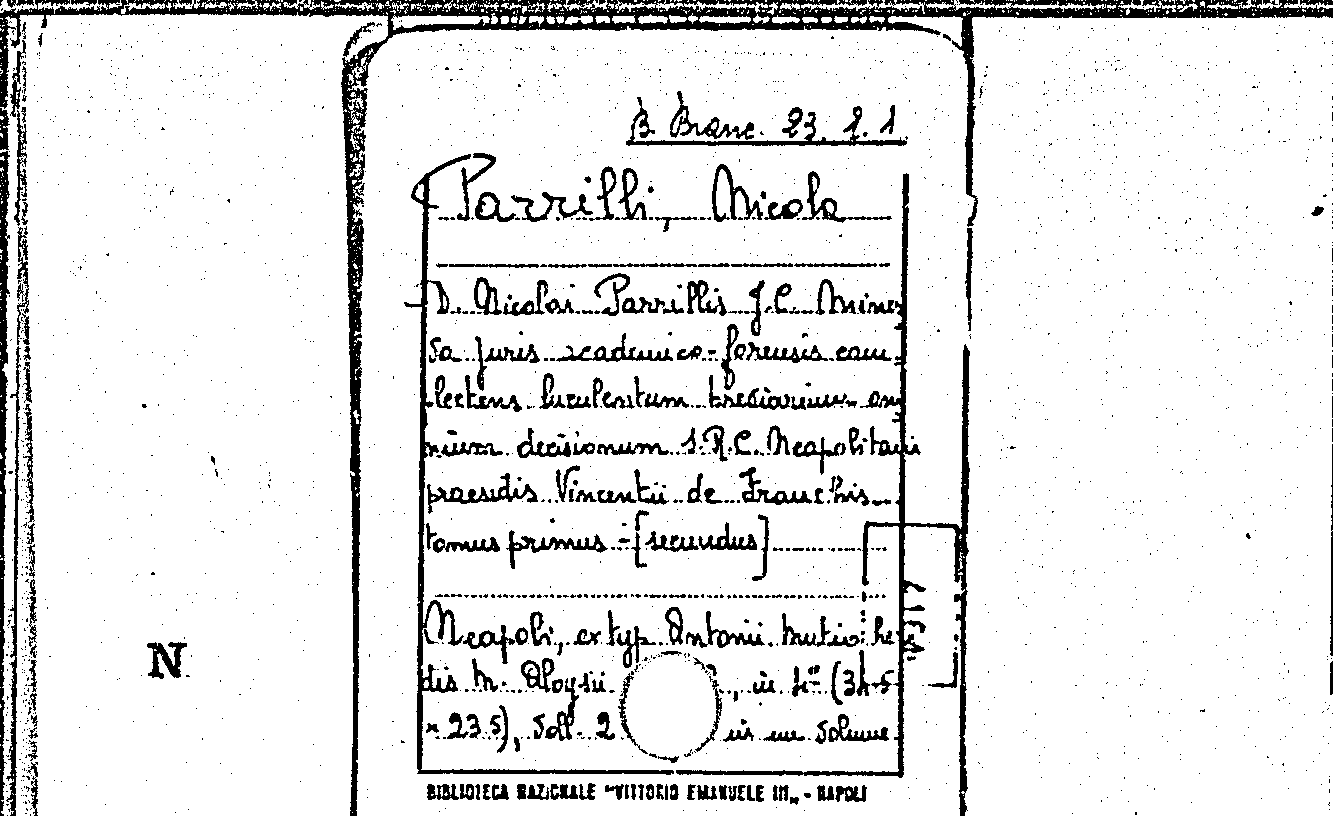 B. Branc. 23. I. 1
Parrilli, Nicola
D. Nicolai Parrillis J. C. Miner
va juris academico-forensis com
plectens luculentum breviarium om
nium decisionum S. R. C. Neapolitani
praesidis Vincentii de Franchis
tomus primus - [secundus]
Neapoli, ex typ. Antonii Mutio: here
dis M. Aloysii , in 4° (34,5
x 23,5), voll. 2 in un volume
N
BIBLIOTECA NAZIONALE "VITTORIO EMANUELE III„ - NAPOLI